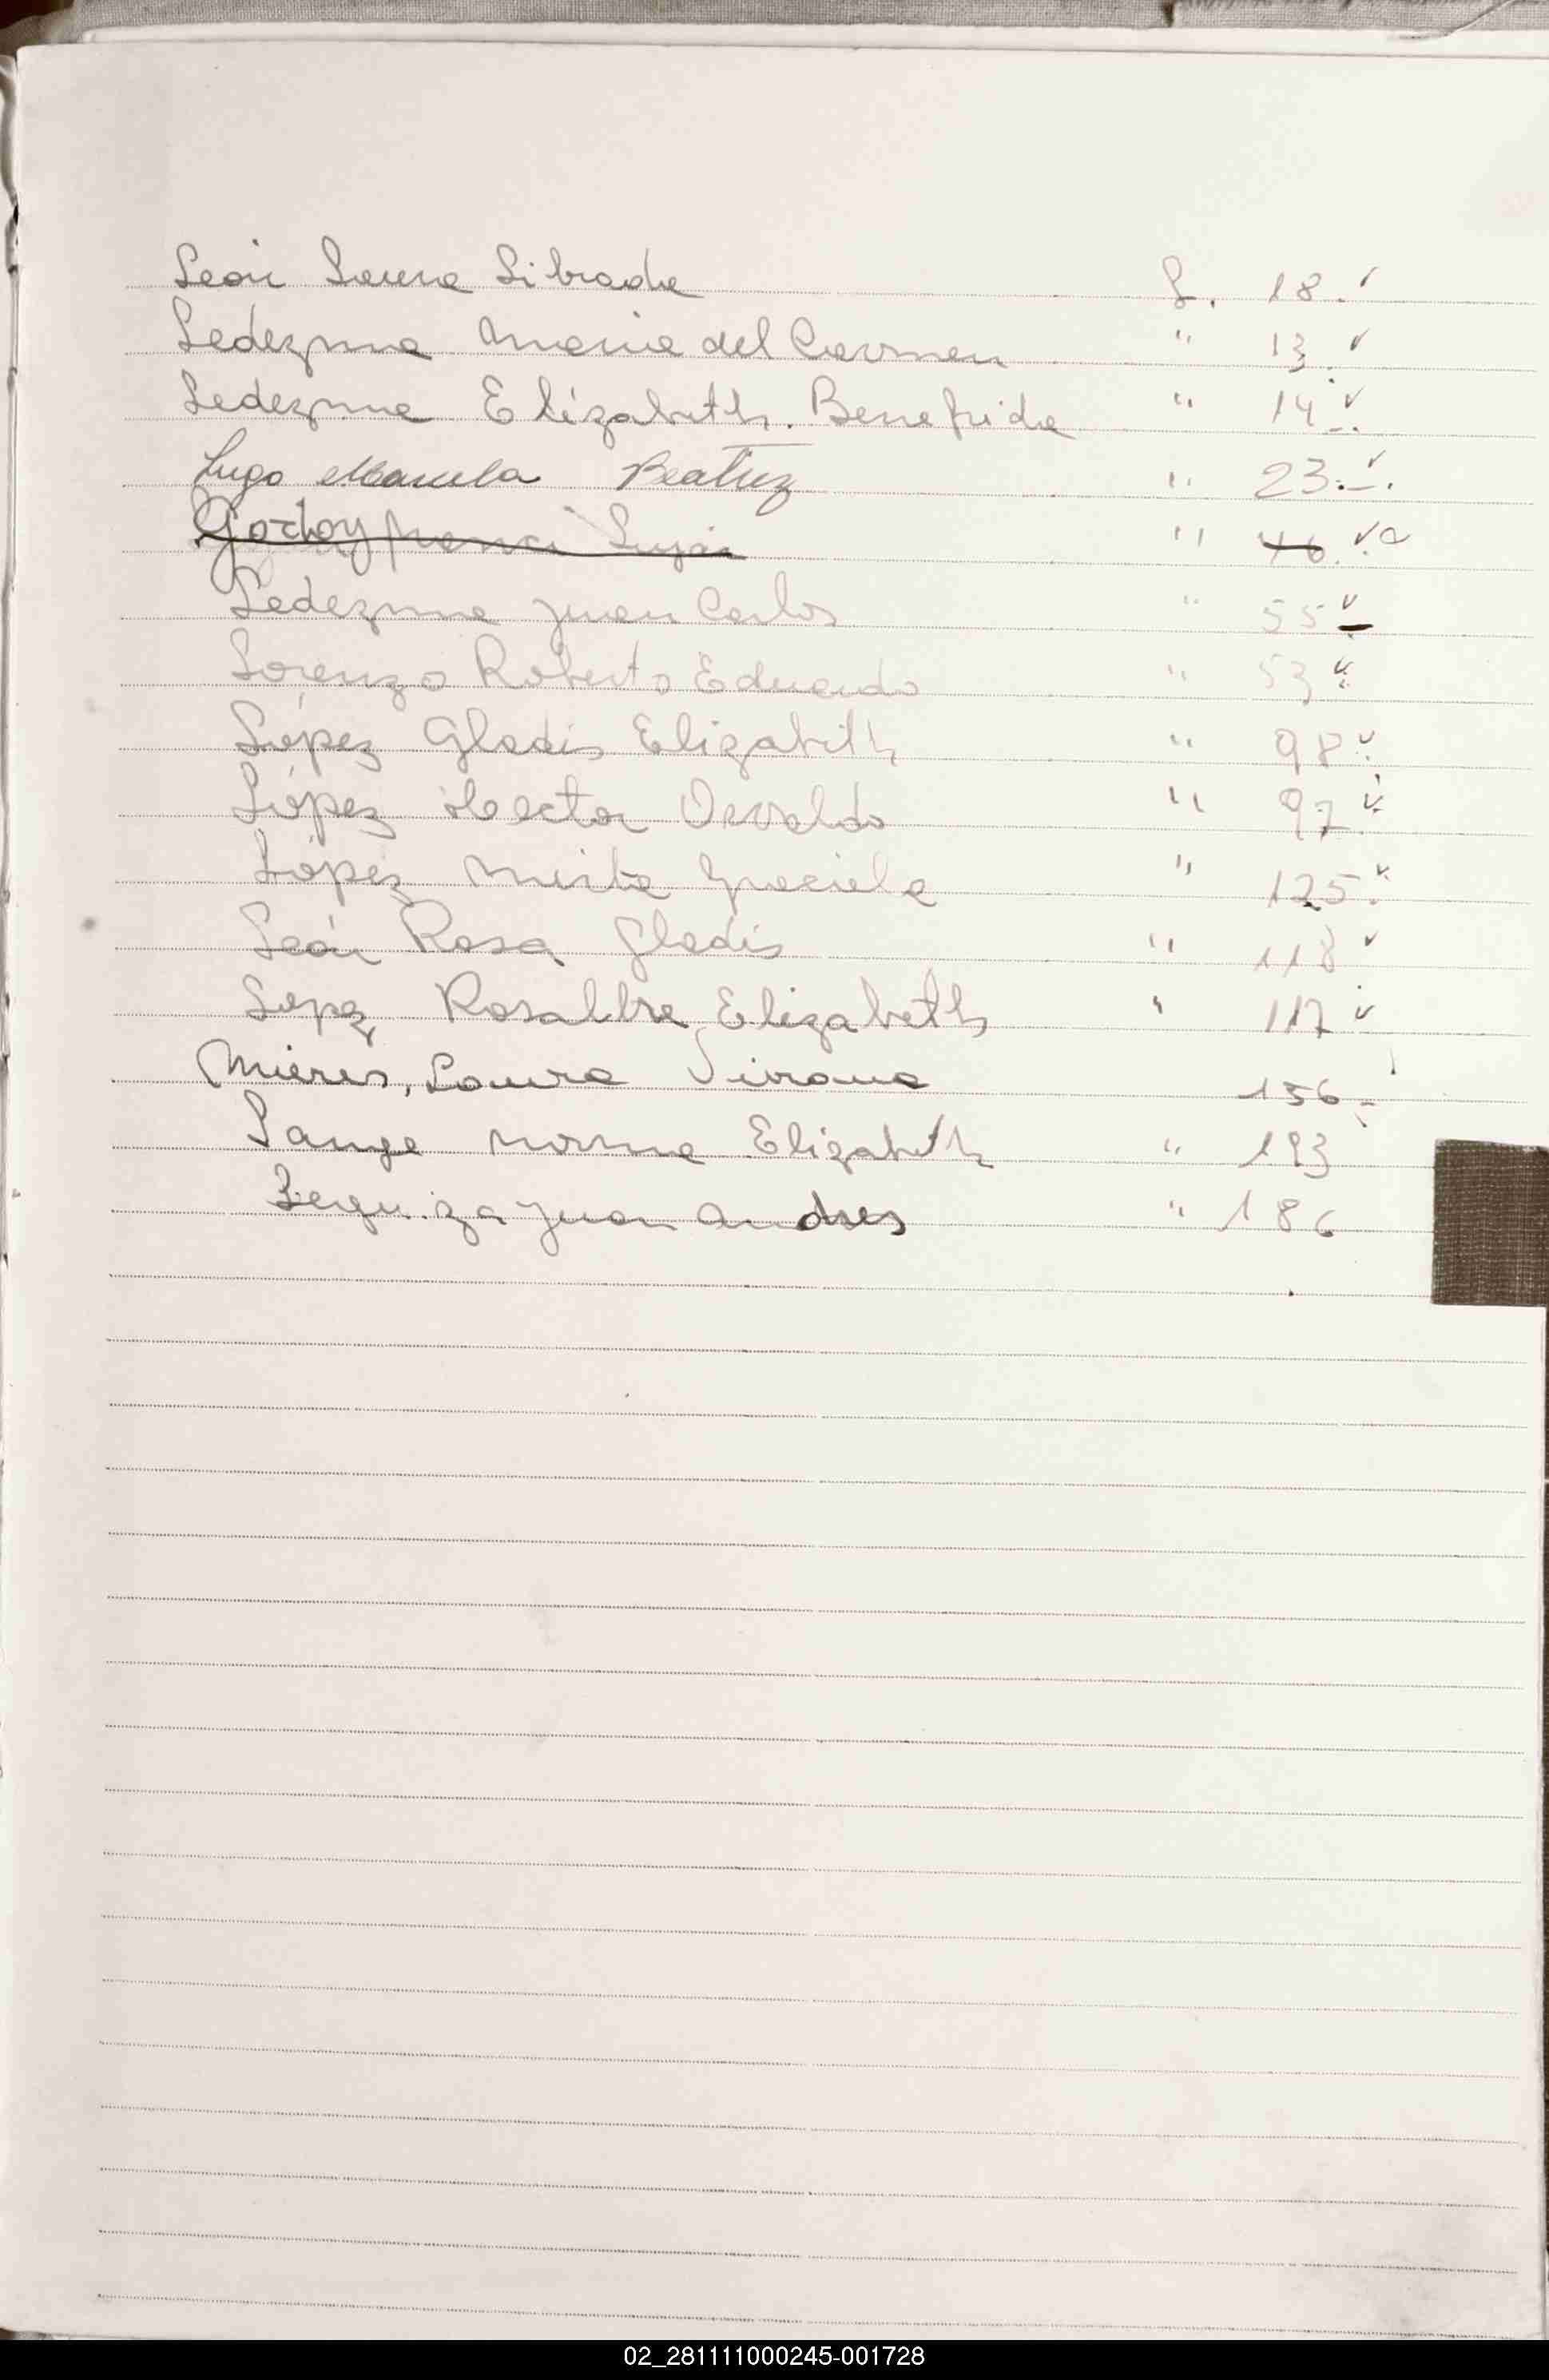 León Laura Librada f. 18. ✓
Ledezma Maria del Carmen " 13. ✓
Ledezma Elizabeth. Benefrida " 14-. ✓
Lugo Marcela Beatriz " 23.-. ✓
Godoy Luján " 46. ✓
Ledezma Juan Carlos " 55 ✓
Lorenzo Roberto Eduardo " 53 ✓
López Gladis Elizabith " 98 ✓
López Hector Osvaldo " 97 ✓
López Mirta Graciela " 125. ✓
León Rosa Gladis " 118 ✓
Lopez Rosalba Elizabeth " 117 ✓
Mieres, Laura Viviana 156-
Lange Norma Elizabith " 193
Juan Andres " 186
02_281111000245-001728